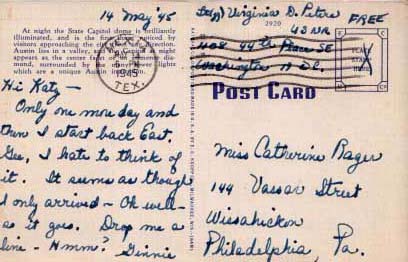 14 May '45
At night the State Capitol dome is brilliantly
illuminated, and is the first object noticed by
visitors approaching the city from any direction.
Austin lies in a valley, and the Capitol at night
appears as the center
mond, surrounded by the many lights
which are a unique
1945
TEX.
Virginia D. Peters
2920
FREE
408 44th Place SE
Washington
PLACE
STAMP
HERE
POST CARD
Hi Katy —
Only one more day and
then I start back East.
Gee, I hate to think of
it. It seems as though
I only arrived - Oh well -
as it goes. Drop me a
line - Hmm? Ginnie
Miss Catherine Bager
144 Vassar Street
Wissahickon
Philadelphia, Pa.